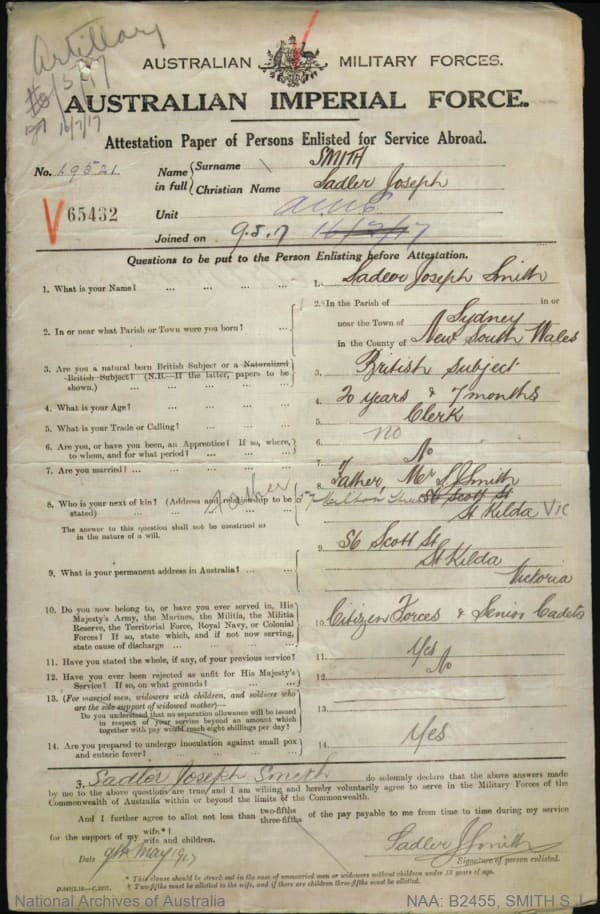 Artillery
16/7/17
AUSTRALIAN MILITARY FORCES.
AUSTRALIAN IMPERIAL FORCE.
Attestation Paper of Persons Enlisted for Service Abroad.
No. 19521
Name in full { Surname SMITH
Christian Name Sadler Joseph
V 65432
Unit AMC
Joined on 9.5.17 16/2/17
Questions to be put to the Person Enlisting before Attestation.
1. What is your Name? ... ... 1. Sadler Joseph Smith
2. In or near what Parish or Town were you born? ... 2. In the Parish of in or
near the Town of Sydney
in the County of New South Wales
3. Are you a natural born British Subject or a Naturalized British Subject? (N.B.—If the latter, papers to be shown.) ... ... 3. British Subject
4. What is your Age? ... ... 4. 20 years & 7 months
5. What is your Trade or Calling? ... ... 5. Clerk
6. Are you, or have you been, an Apprentice? If so, where, to whom, and for what period? ... ... 6. no
7. Are you married? ... ... 7. No
8. Who is your next of kin? (Address and relationship to be stated) ... Father 8. Father, Mr S Smith
56 Scott St
St Kilda VIC
The answer to this question shall not be construed as in the nature of a will.
9. What is your permanent address in Australia? ... ... 9. 56 Scott St
St Kilda
Victoria
10. Do you now belong to, or have you ever served in, His Majesty's Army, the Marines, the Militia, the Militia Reserve, the Territorial Force, Royal Navy, or Colonial Forces? If so, state which, and if not now serving, state cause of discharge ... ... 10. Citizen Forces & Senior Cadets
11. Have you stated the whole, if any, of your previous service? 11. Yes
12. Have you ever been rejected as unfit for His Majesty's Service? If so, on what grounds? ... ... 12. No
13. (For married men, widowers with children, and soldiers who are the sole support of widowed mother)—
Do you understand that no separation allowance will be issued in respect of your service beyond an amount which together with pay would reach eight shillings per day? 13.
14. Are you prepared to undergo inoculation against small pox and enteric fever? ... ... 14. Yes
I, Sadler Joseph Smith do solemnly declare that the above answers made
by me to the above questions are true, and I am willing and hereby voluntarily agree to serve in the Military Forces of the
Commonwealth of Australia within or beyond the limits of the Commonwealth.
And I further agree to allot not less than two-fifths three-fifths of the pay payable to me from time to time during my service
for the support of my wife.*† wife and children.
Date 9th May 1917
Sadler J Smith
Signature of person enlisted.
* This clause should be struck out in the case of unmarried men or widowers without children under 18 years of age.
† Two-fifths must be allotted to the wife, and if there are children three-fifths must be allotted.
National Archives of Australia
NAA: B2455, SMITH S J